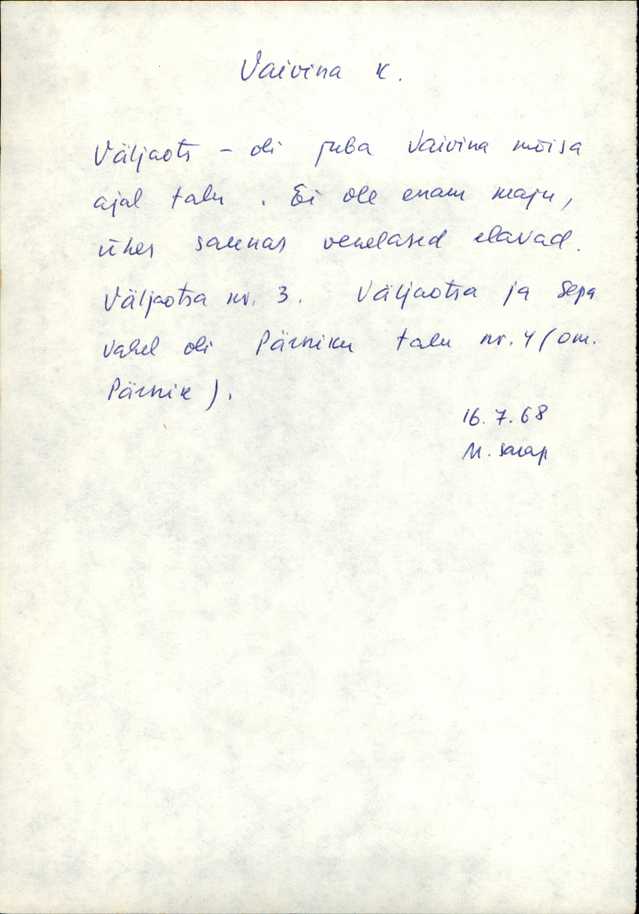 Vaivina k.
Väljaots – oli juba Vaivina mõisa
ajal talu. Ei ole enam maju,
ühes saunas venelased elavad.
Väljaotsa nr. 3. Väljaotsa ja Sepa
vahel oli Pärniku talu nr. 4 (om.
Pärnik).
16.7.68
M.